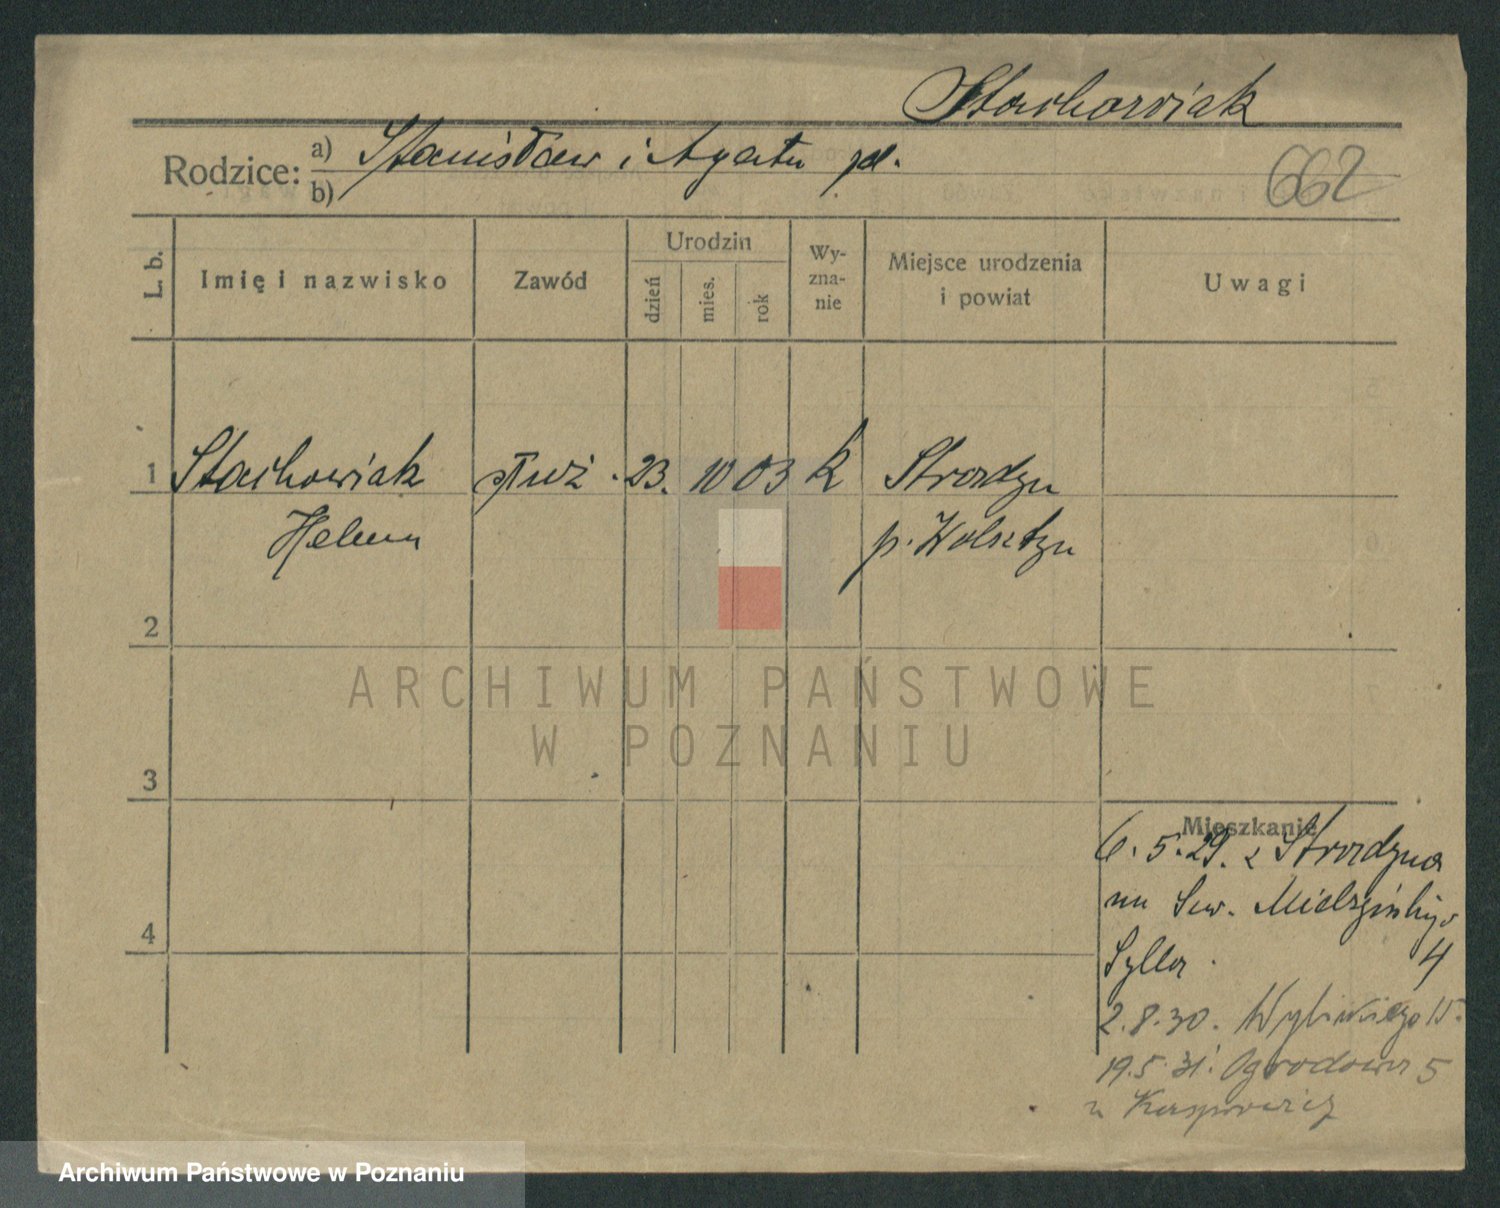 Stachowiak
Rodzice: a) Stanisław i Agata
b)
662
L. b.
Imię i nazwisko
Zawód
Urodzin
dzień
mies.
rok
Wy-
zna-
nie
Miejsce urodzenia
i powiat
Uwagi
1 Stachowiak służ. 23. 10 03 K
Helena
p. Wolsztyn
2
3
4
Mieszkanie
6. 5. 29. z
Mielżyńskiego
4
2. 8. 30. Wybickiego
19. 5. 31. Ogrodowa 5
u Kasprowicz
ARCHIWUM PAŃSTWOWE
W POZNANIU
Archiwum Państwowe w Poznaniu